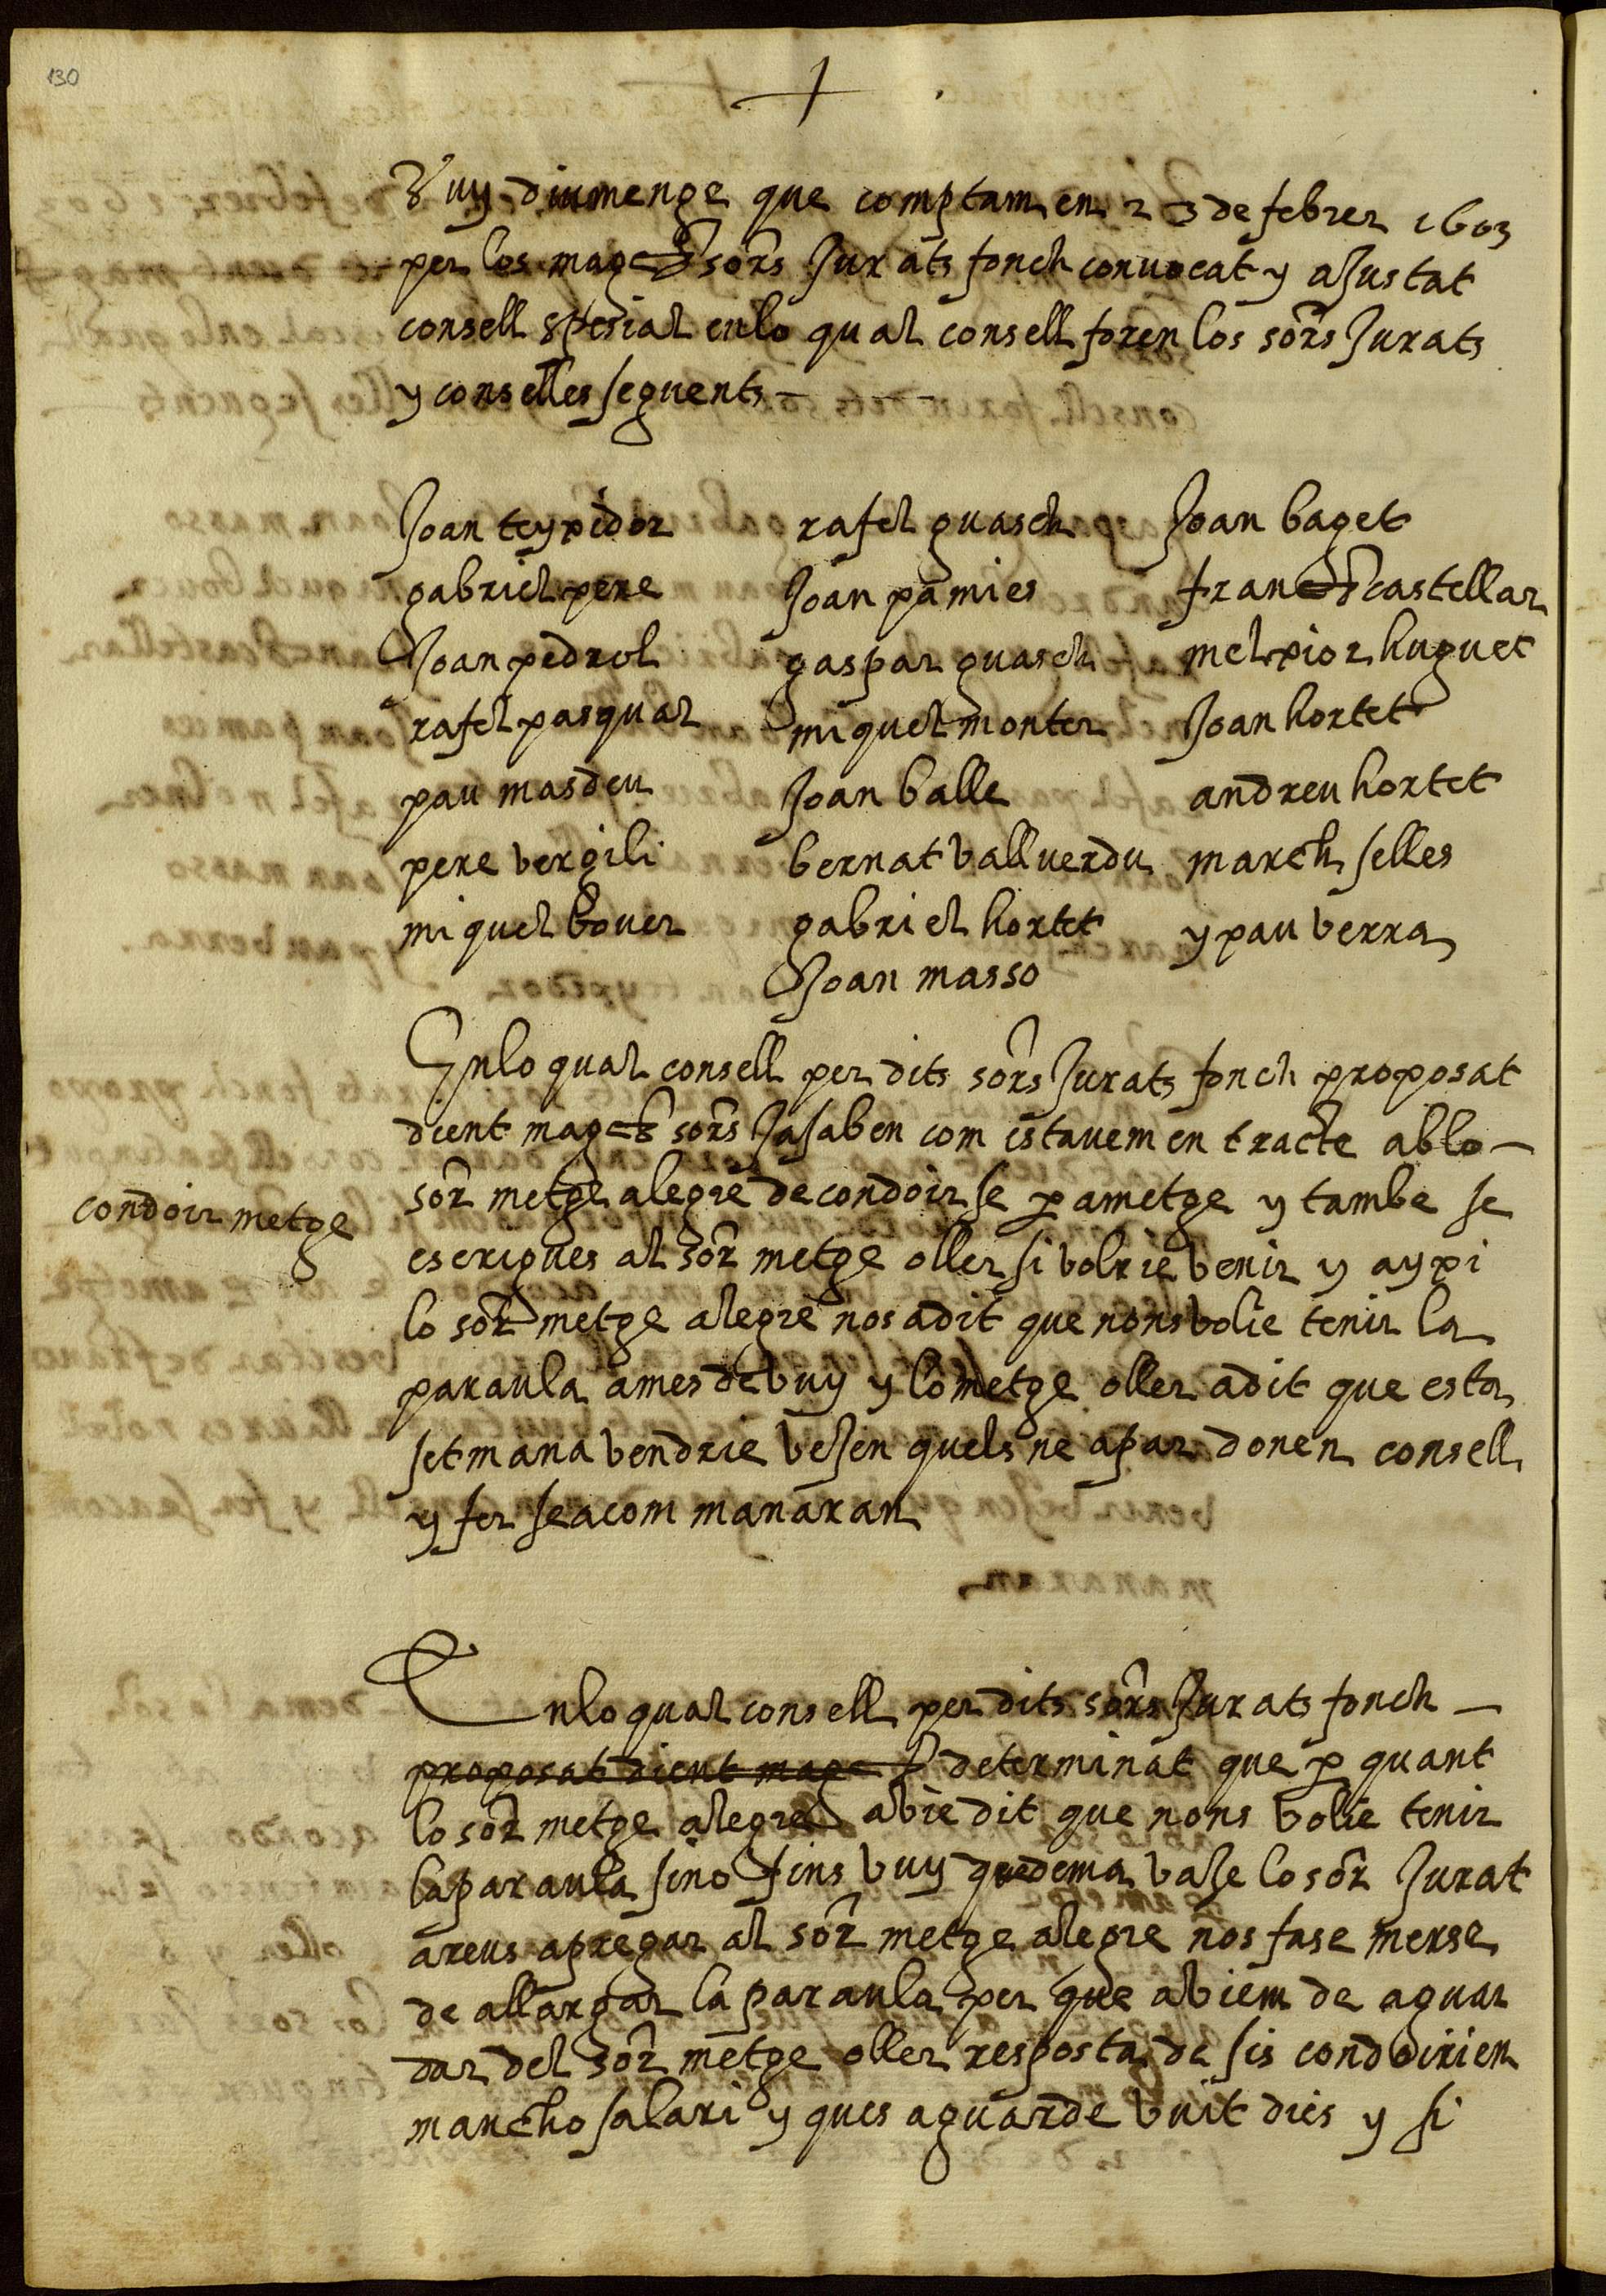 130
+
Vuy diumenge que comptam en 23 de febrer 1603
per los magchs sors Jurats fonch convocat y aJustat
consell spesial enlo qual consell foren los sors Jurats
y conselles seguents -
Joan teyxidor rafel guasch Joan baget
gabriel pere Joan pamies franch castellar
Joan pedrol gaspar guasch melxior huguet
rafel pasqual miquel monter Joan hortet
pau masdeu Joan balle andreu hortet
pere vergili bernat vallverdu march selles
miquel bover gabriel hortet y pau verra
Joan masso
Enlo qual consell per dits sors Jurats fonch proposat
dient magchs sors Ja saben com estavem en tracte ablo -
sor metge alegre de condoir se per a metge y tambe se
condoir metge
escrigues al sor metge oller si volrie venir y ayxi
lo sor metge alegre nos a dit que nons volie tenir la
paraula ames de vuy y lo metge oller a dit que esta
setmana vendrie veJen quels ne apar donen consell
y fer sea com manaran
Enlo qual consell per dits sors Jurats fonch -
proposat dient magchs determinat que per quant
lo sor metge alegre abie dit que nons volie tenir
la paraula sino fins vuy que dema vaJe lo sor Jurat
a reus a pregar al sor metge alegre nos fase merse
de allargar la paraula per que abiem de aguar
dar del sor metge oller resposta de sis condoirien
mancho salari y ques aguarde vuit dies y si